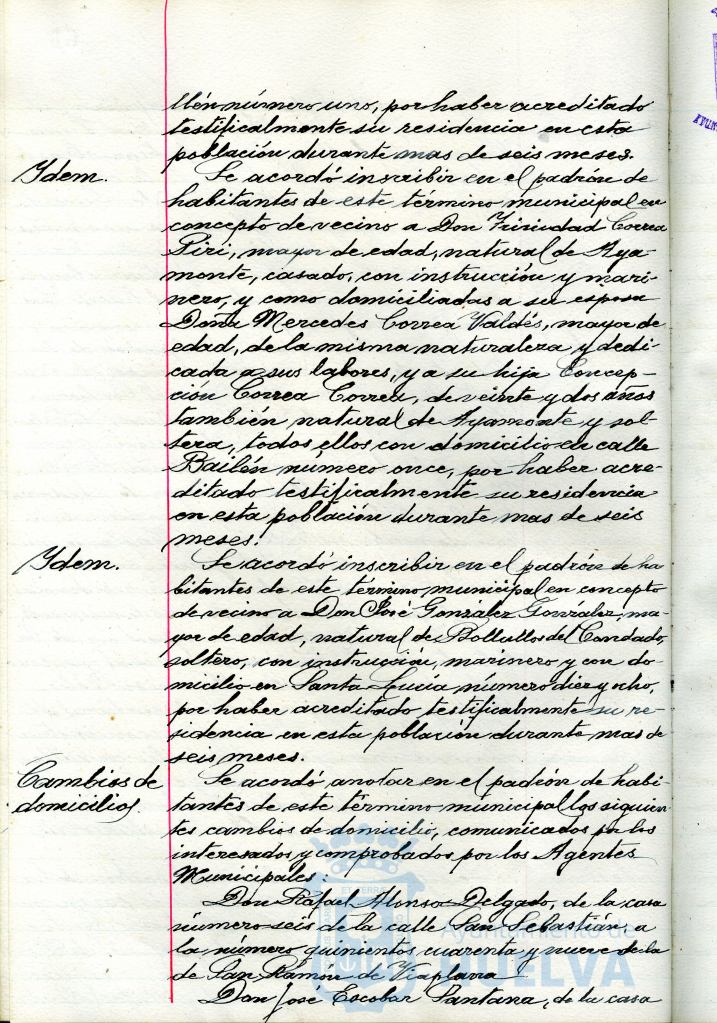 llén número uno, por haber acreditado
testificalmente su residencia en esta
población durante mas de seis meses.
Ydem.
Se acordó inscribir en el padrón de
habitantes de este término municipal en
concepto de vecino a Don Trinidad Correa
Piri, mayor de edad, natural de Aya-
monte, casado, con instrucción y mari-
nero, y como domiciliadas a su esposa
Doña Mercedes Correa Valdés, mayor de
edad, de la misma naturaleza y dedi-
cada a sus labores, y a su hija Concep-
ción Correa Correa, de veinte y dos años
también natural de Ayamonte y sol-
tera, todos ellos con domicilio en calle
Bailén número once, por haber acre-
ditado testificalmente su residencia
en esta población durante mas de seis
meses.
Ydem.
Se acordó inscribir en el padrón de ha-
bitantes de este término municipal en concepto
de vecino a Don José González González, ma-
yor de edad, natural de Bollullos del Condado,
soltero, con instrucción, marinero y con do-
micilio en Santa Lucía número diez y ocho,
por haber acreditado testificalmente su re-
sidencia en esta población durante mas de
seis meses.
Cambios de
domicilios.
Se acordó anotar en el padrón de habi-
tantes de este término municipal los siguien-
tes cambios de domicilio, comunicados por los
interesados y comprobados por los Agentes
Municipales:
Don Rafael Alonso Delgado, de la casa
número seis de la calle San Sebastián, a
la número quinientos cuarenta y nueve de la
de San Ramón de Viaplana
Don José Escobar Santana, de la casa
Ayuntamiento de
HUELVA